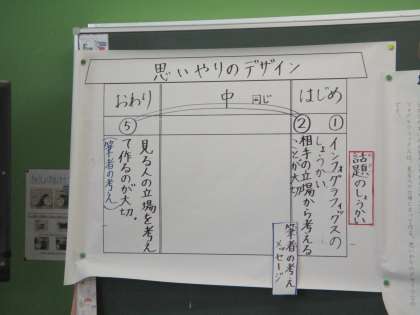 思いやりのデザイン
はじめ
中
同じ
おわり
①
②
⑤
話題のしょうかい
インフォグラフィックスの
しょうかい
相手の立場から考える
ことが大切
筆者の考え
メッセージ
見る人の立場を考え
て作るのが大切。
(筆者の考え)